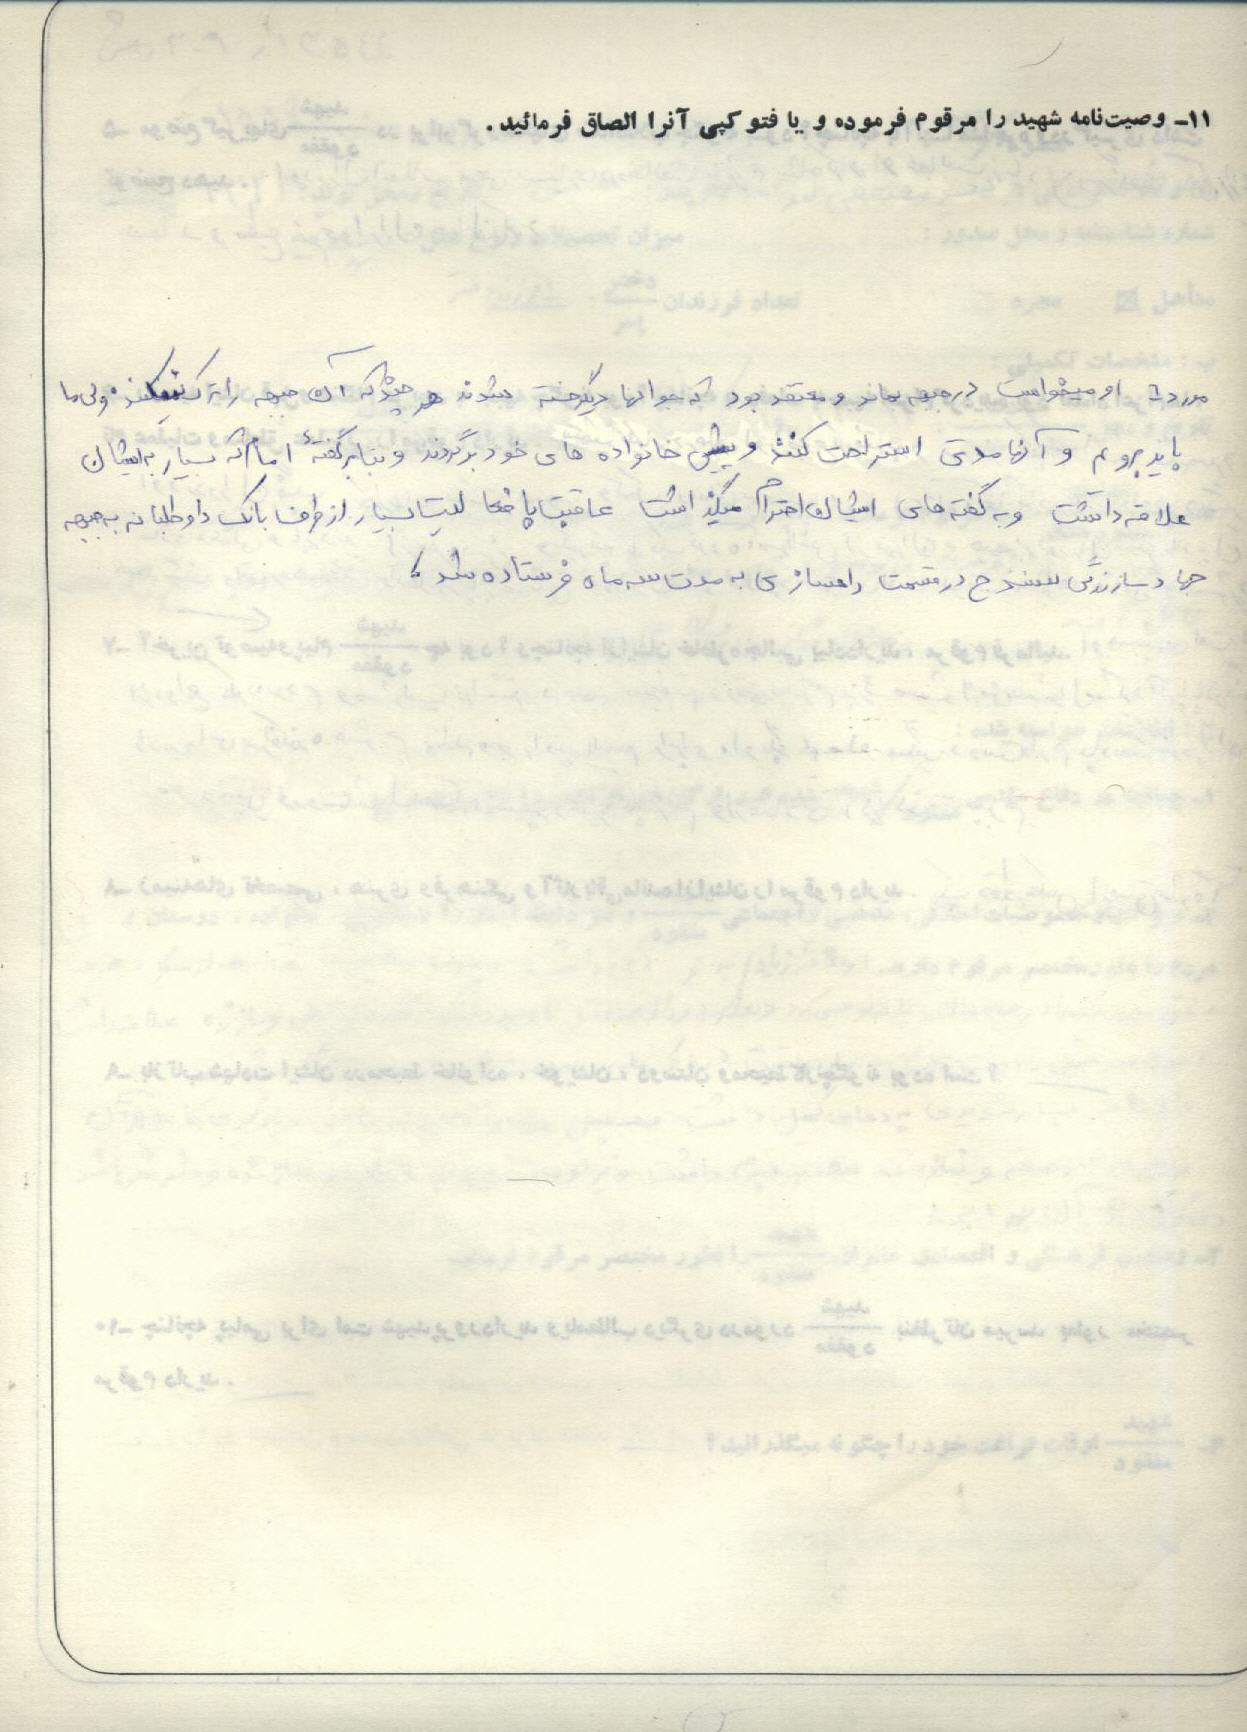 ۱۱ـ وصیت‌نامه شهید را مرقوم فرموده و یا فتو کپی آنرا الصاق فرمائید.
مورد ۶ او میخواست در جبهه بماند و معتقد بود که جوانها دیگر خسته میشوند هر چند که آنان جبهه را ترک نمیکنند ولی ما
باید برویم و آنها مدتی استراحت کنند و پیش خانواده های خود برگردند و بنابر گفتهٔ امام که بسیار به ایشان
علاقه داشت و به گفته های ایشان احترام میگذاشت عاقبت با بسیار از طرف بانک داوطلبانه به جبهه
جهاد سازندگی سنندج در قسمت راهسازی به مدت سه ماه فرستاده شد